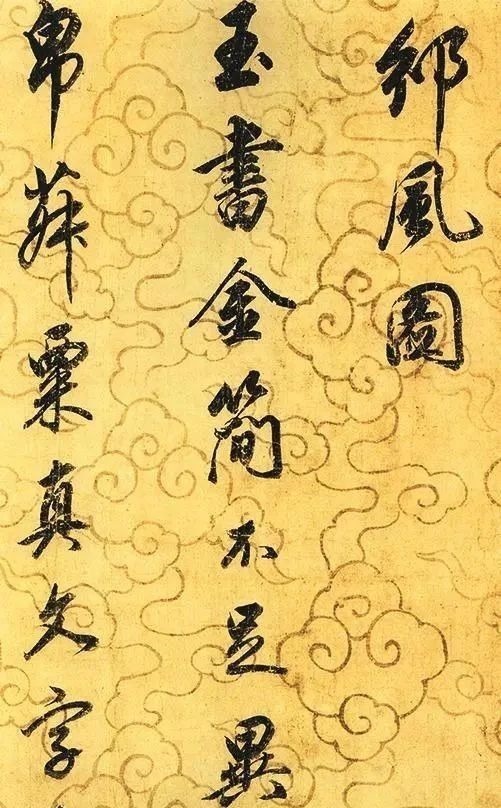 邠風圖
玉書金簡不足異
帛菽粟真文字